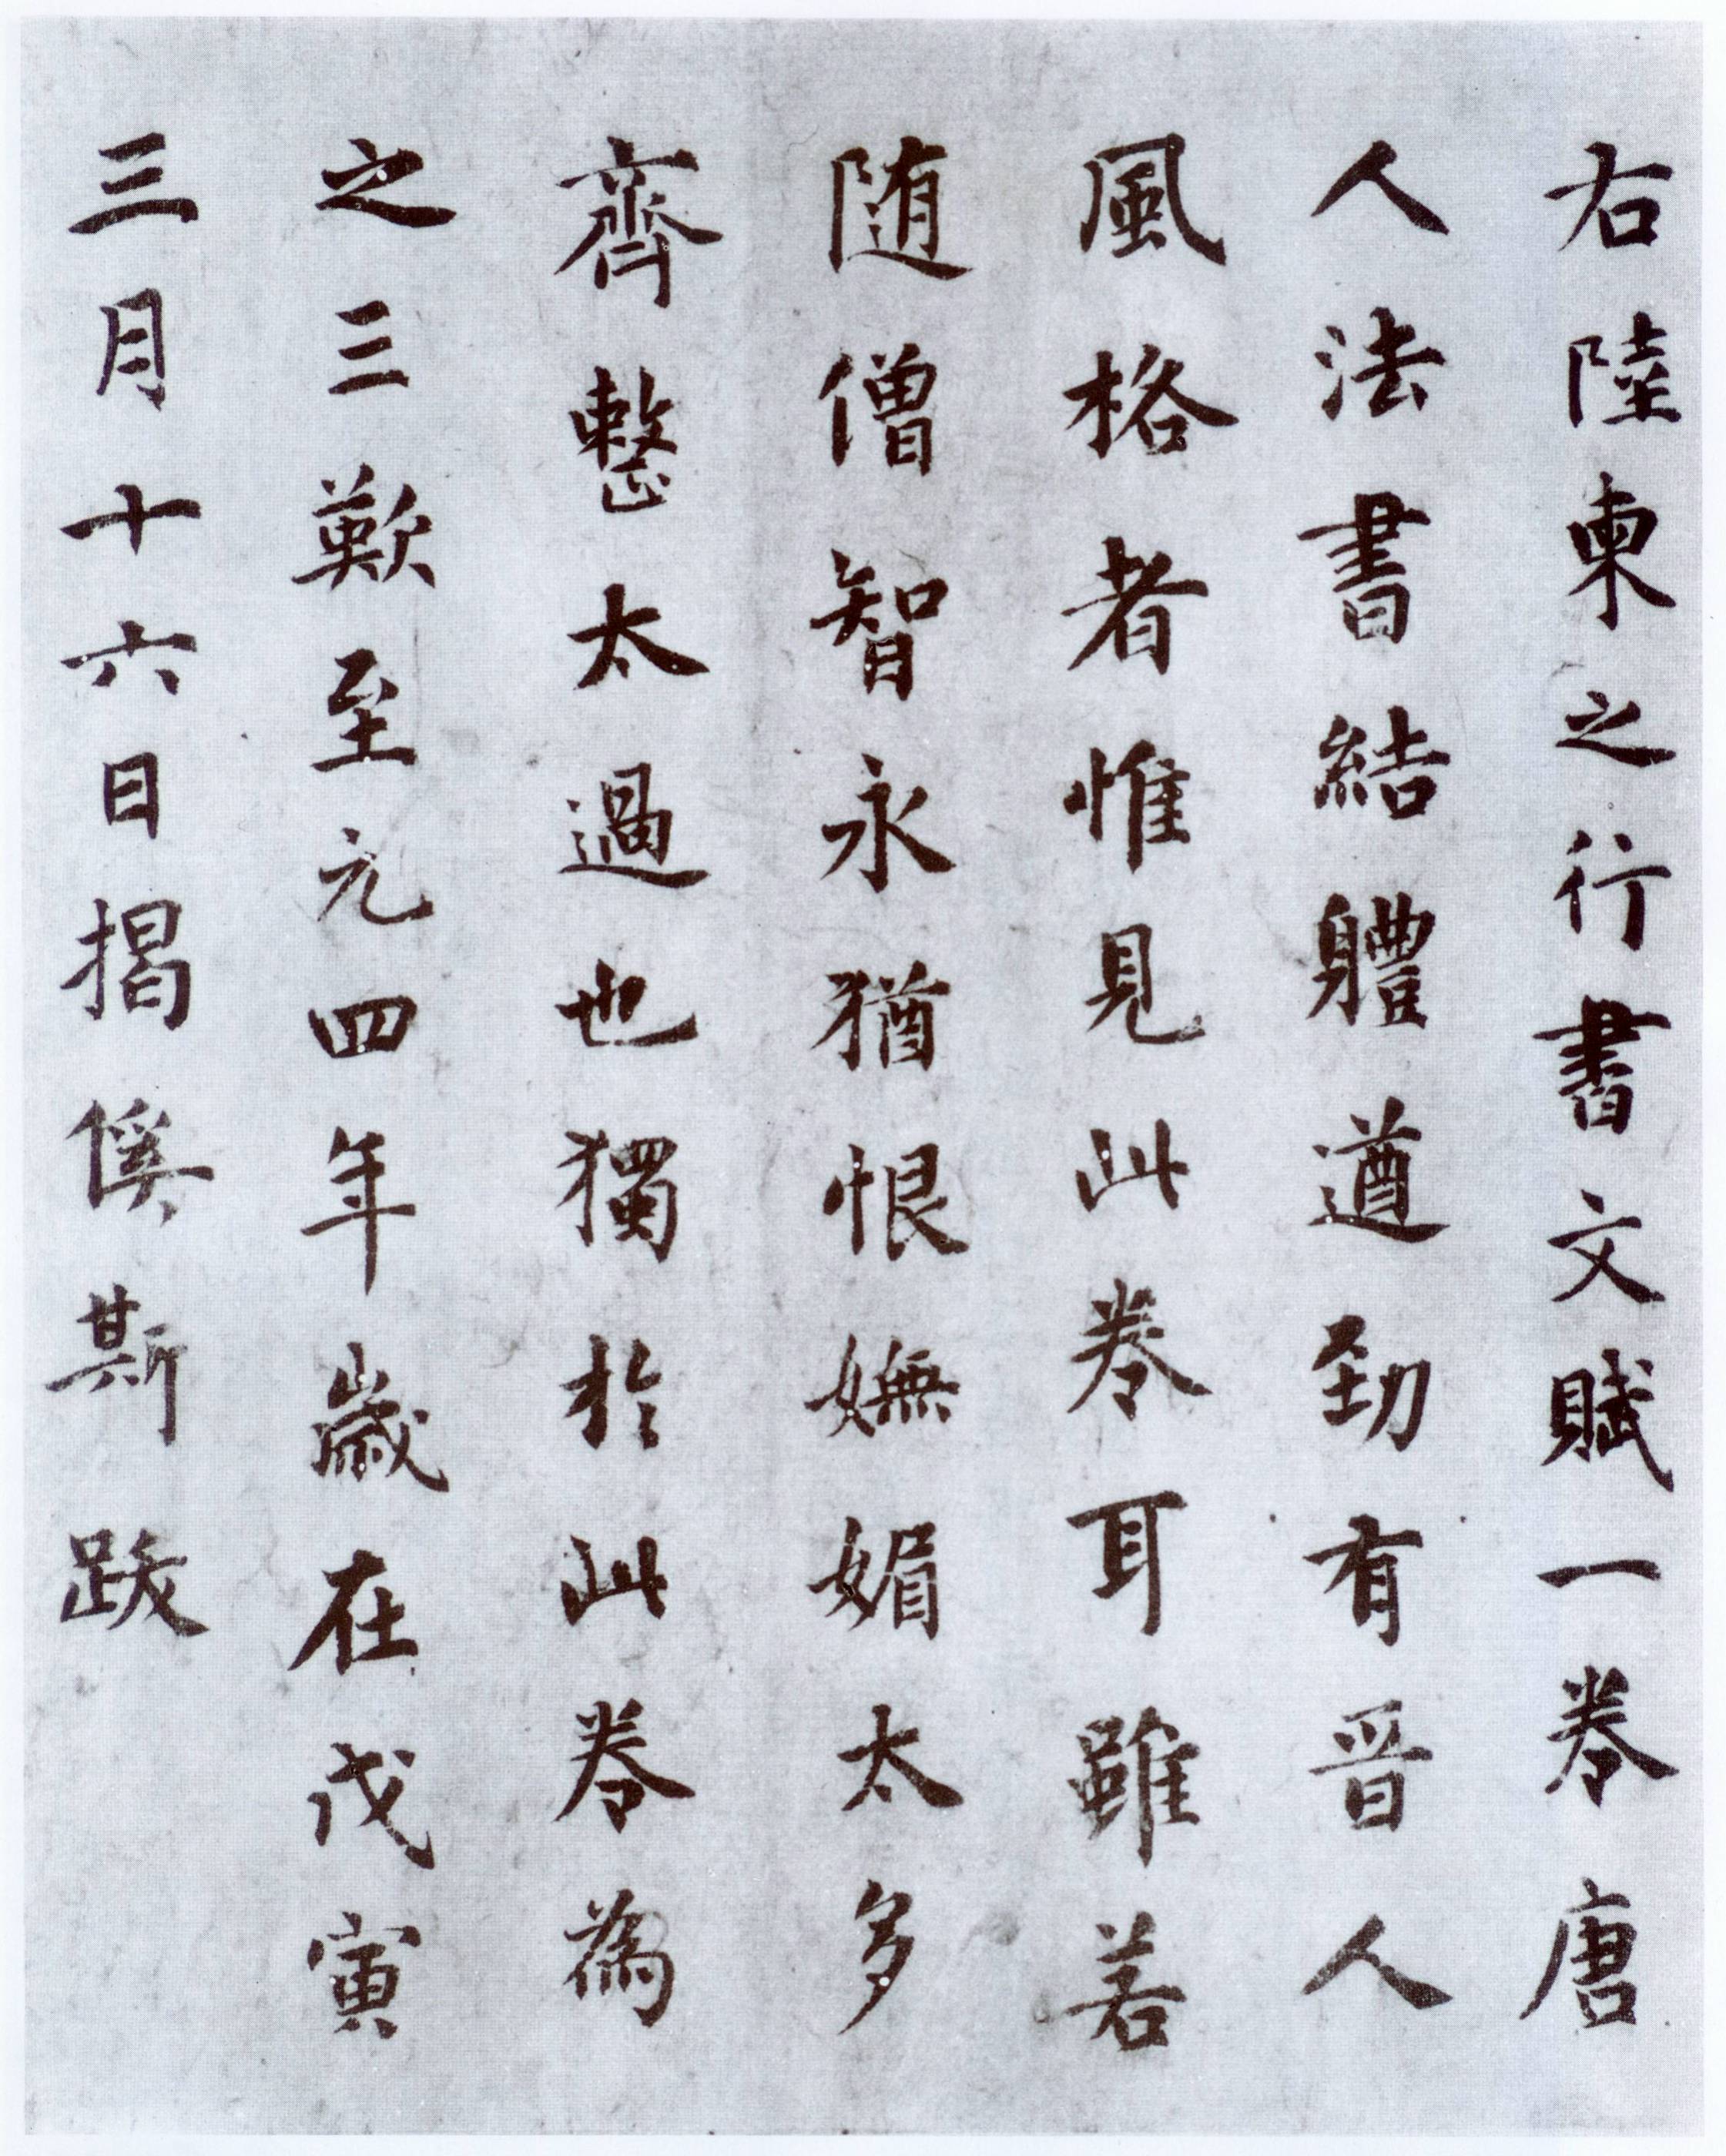 右陸柬之行書文賦一卷唐
人法書結體遒勁有晉人
風格者惟見此卷耳雖若
隨僧智永猶恨嫵媚太多
齊整太過也獨於此卷為
之三歎至元四年歲在戊寅
三月十六日揭傒斯跋